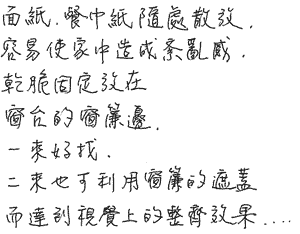 面紙．餐巾紙隨處散放．
容易使家中造成紊亂感．
乾脆固定放在
窗台的窗簾邊．
一來好找．
二來也可利用窗簾的遮蓋
而達到視覺上的整齊效果....